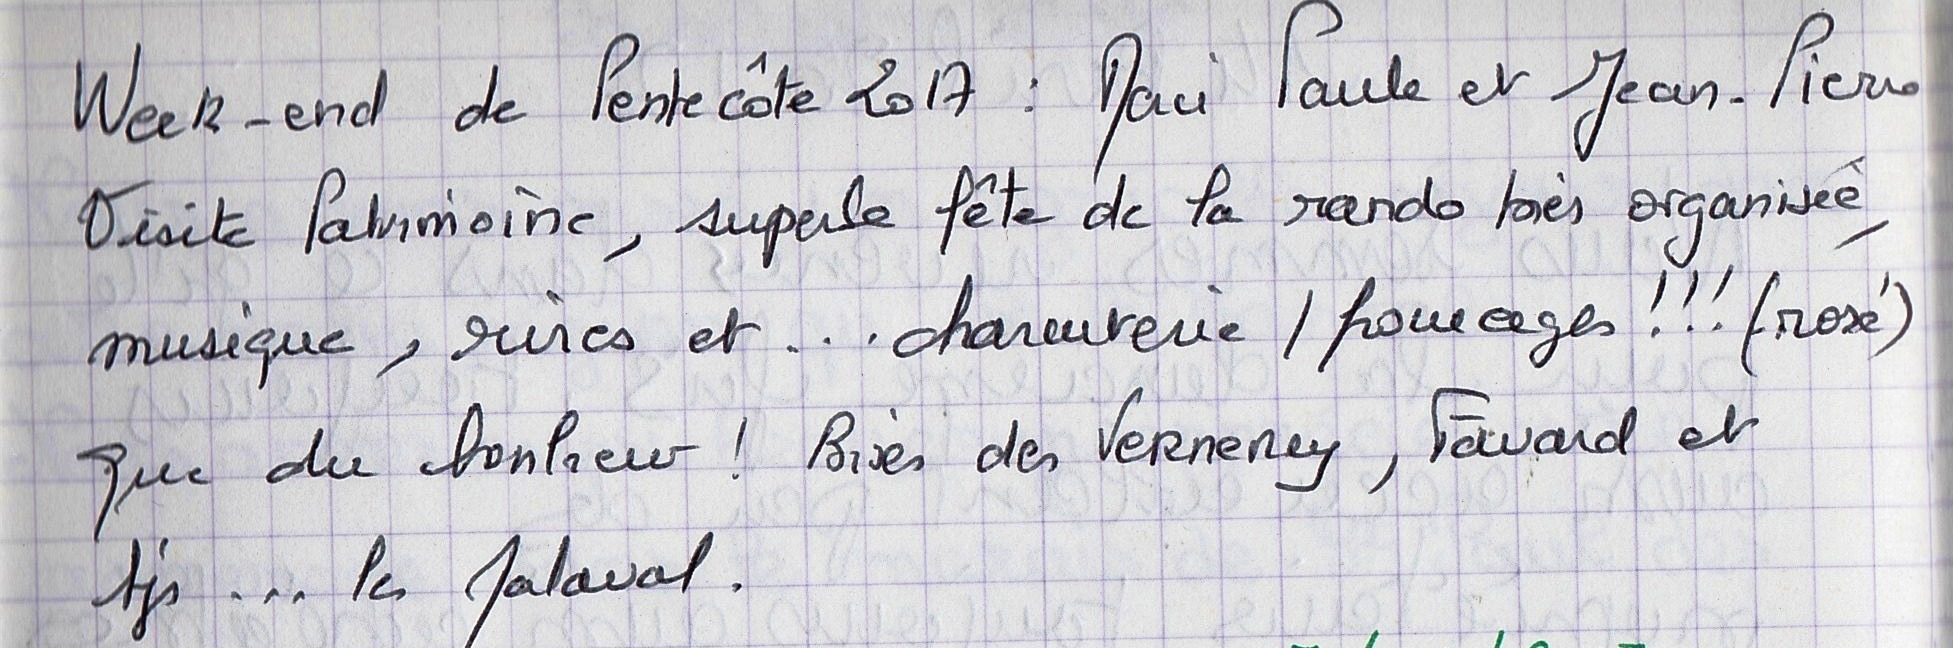 Week-end de Pentecôte 2017 : Mari Paule et Jean-Pierre
Visite Patrimoine, superbe fête de la rando très organisée,
musique, rires et ... charcuterie / fromages !!! (rosé)
que du bonheur ! Bises des Verneney, Favard et
tjs ... les Jalaval.